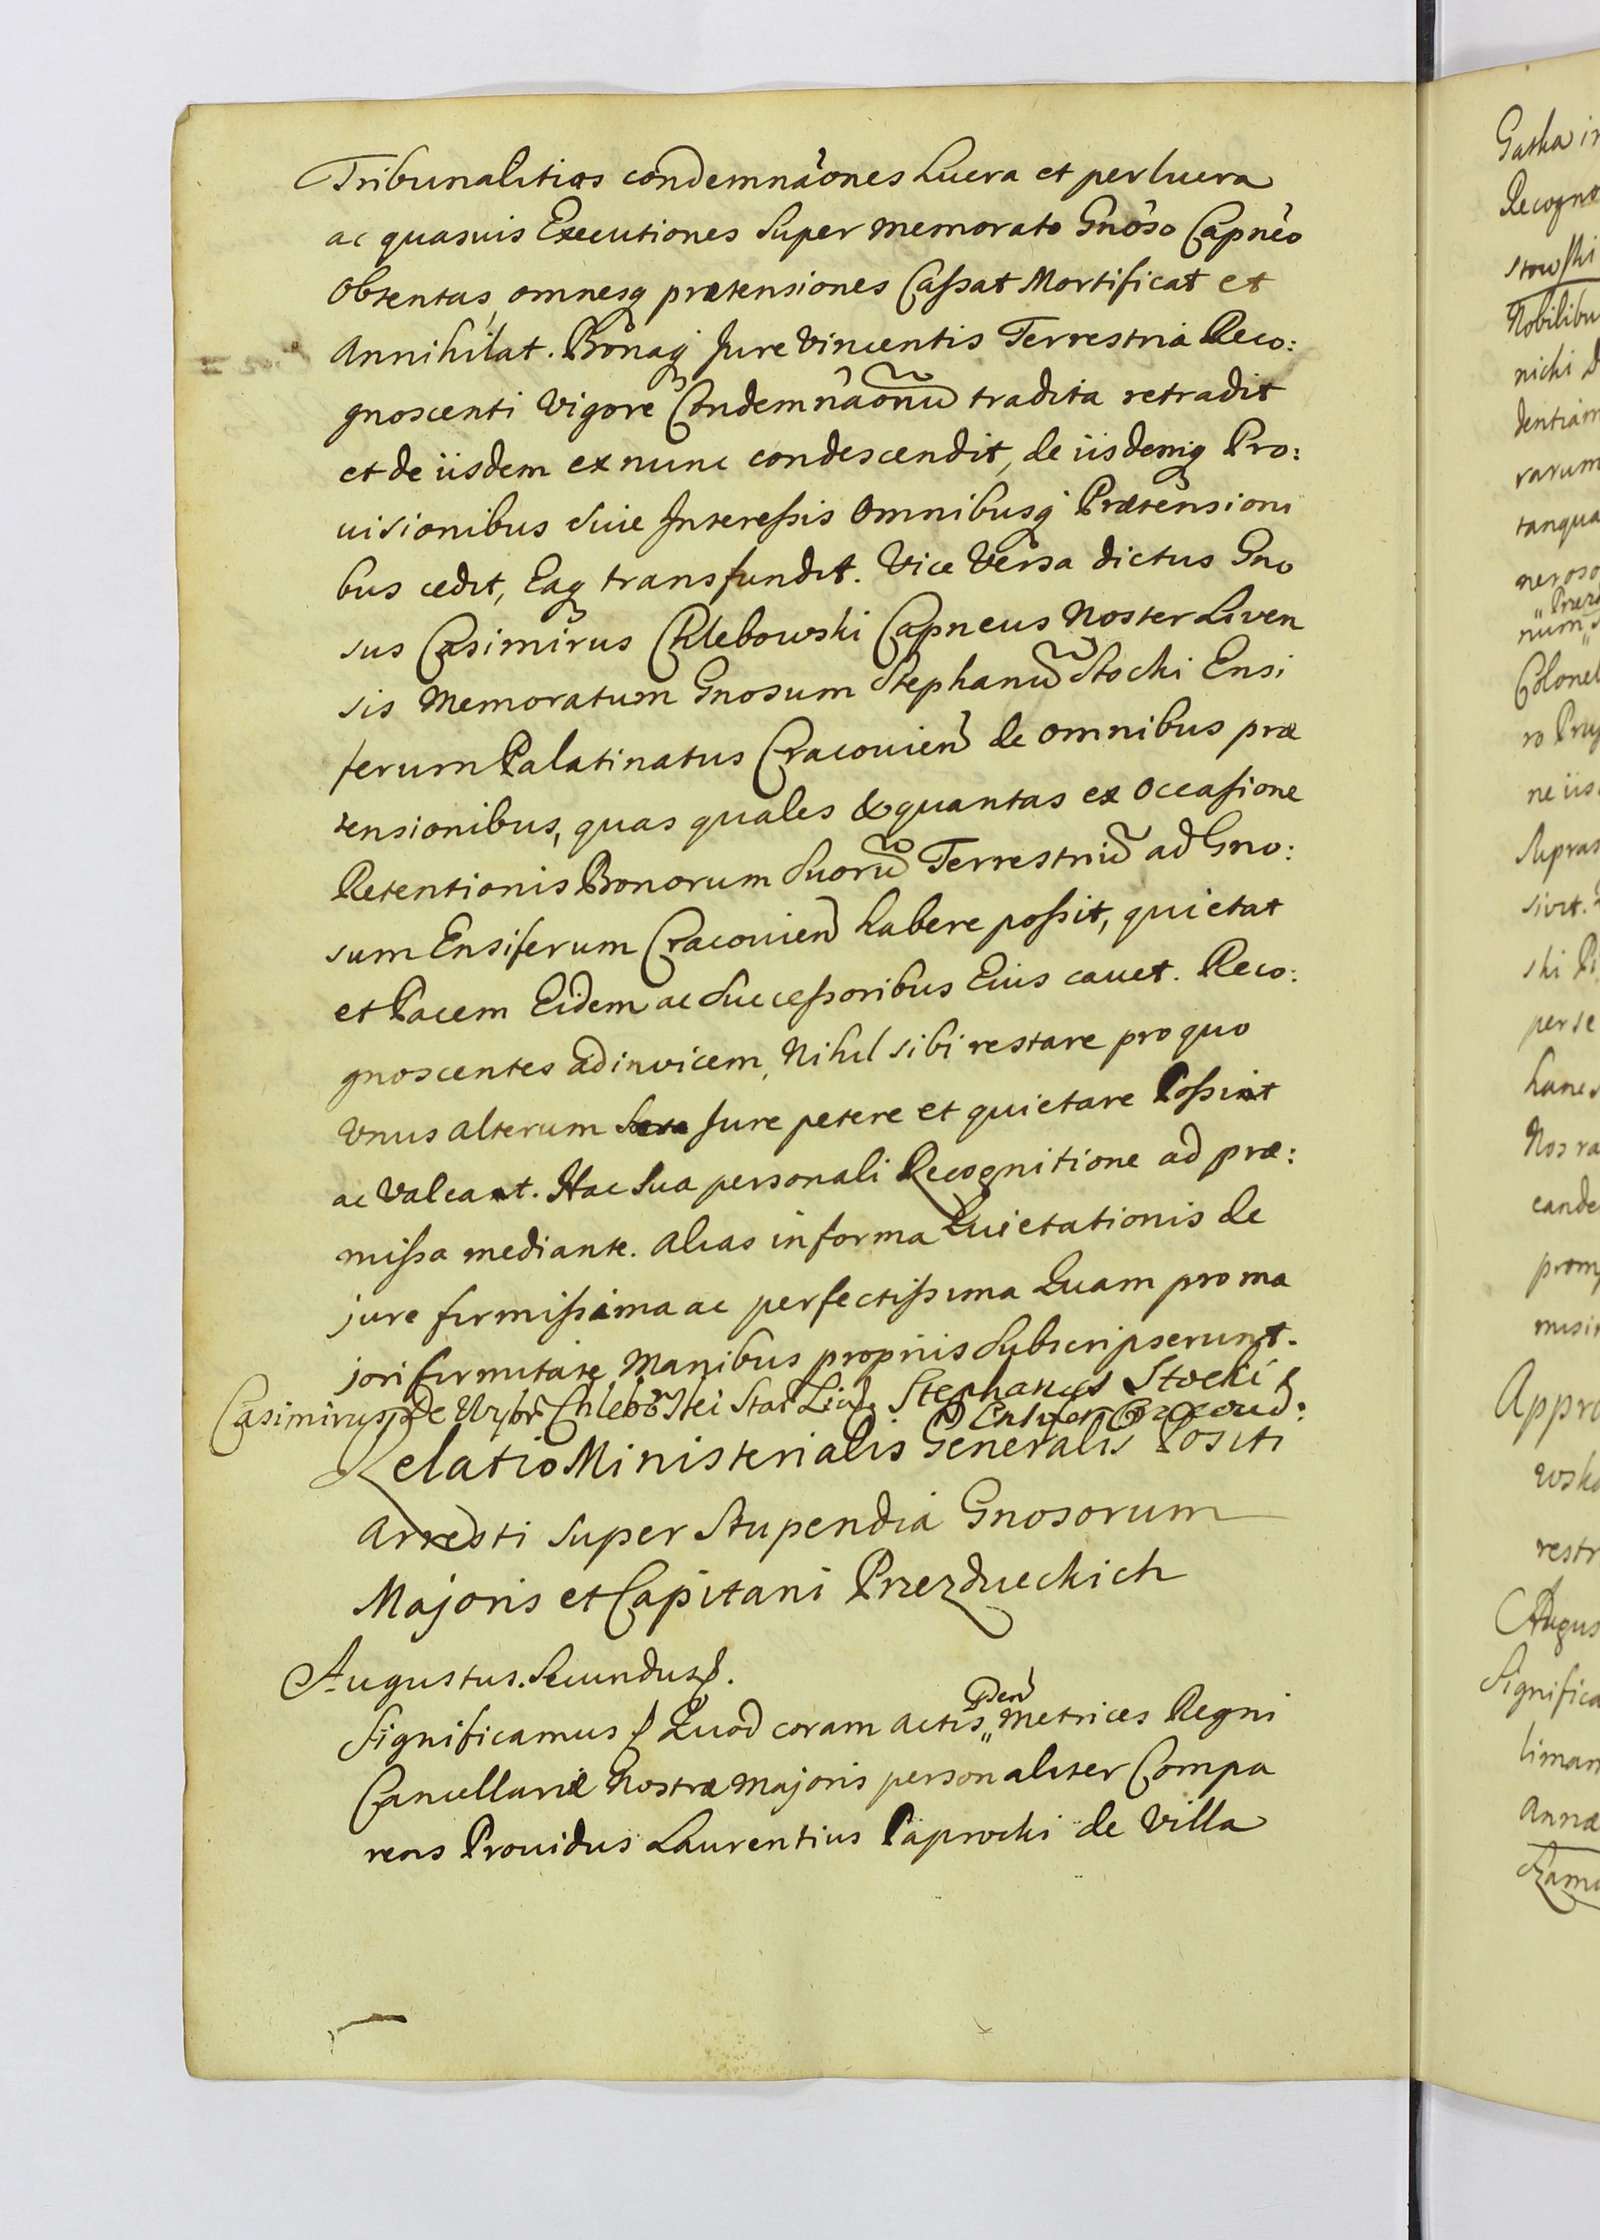 Tribunalitias condemnãones Lucra et perlucra
ac quasuis Executiones super memorato Gnoso Capneo
obtentas, omnesq prætensiones Cassat Mortificat et
Annihilat. Bonaq Jure vincentis Terrestria Reco:
gnoscenti vigore Condemnãonũ tradita retradit
et de iisdem ex nunc condescendit, de iisdemq Pro:
uisionibus siue Interessis omnibusq Prætensioni
bus cedit, Eaq transfundit. Vice Versa dictus Gno
sus Casimirus Chlebowski Capneus Noster Liven
sis Memoratum Gnosum Stephanũ Stocki Ensi
ferum Palatinatus Cracouien de omnibus præ
tensionibus, quas quales & quantas ex occasione
Retentionis Bonorum Suorũ Terrestriũ ad Gno:
sum Ensiferum Cracouien habere possit, quietat
et Pacem Eidem ac Successoribus Eius cauet. Reco:
gnoscentes adinvicem, Nihil sibi restare pro quo
Unus alterum Jure petere et quietare Possint
ac valeant. Hac sua personali Recognitione ad præ:
missa mediante. alias in forma Quietationis de
jure firmissima ac perfectissima Quam pro ma
jori firmitate Manibus propriis Subscripserunt.
Casimirus de Chlebowski Stephanus Stocki
Relatio Ministerialis Generalis Positi
Arresti super Stupendia Gnosorum
Majoris et Capitani Przezdueckich
Augustus Secundus
Significamus Quod coram actis metrices Regni
Cancellariæ Nostræ Majoris personaliter Compa
rens Prouidus Laurentius Paprocki de Villa
Gatka in
Recogno
stowski
Nobilibu
nichi D
dentiam
rarum
tanqua
neroso
num
Colonel
ro Pruy
ne iis
Supras
sivit.
ski
per se
hanes
Nos ra
eande
prom
misin
Appro
wsko
restr
Augus
Significa
liman
Annæ